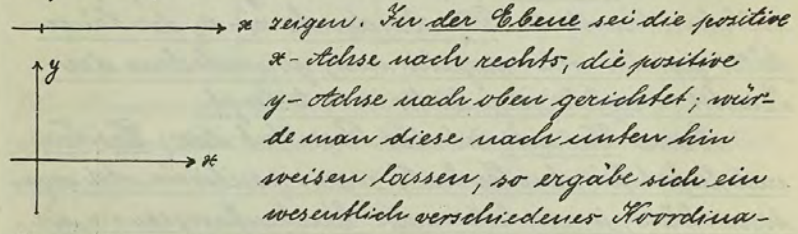 x zeigen. In der Ebene sei die positive
y x-Achse nach rechts, die positive
y-Achse nach oben gerichtet; wür-
x de man diese nach unten hin
weisen lassen, so ergäbe sich ein
wesentlich verschiedenes Koordina-